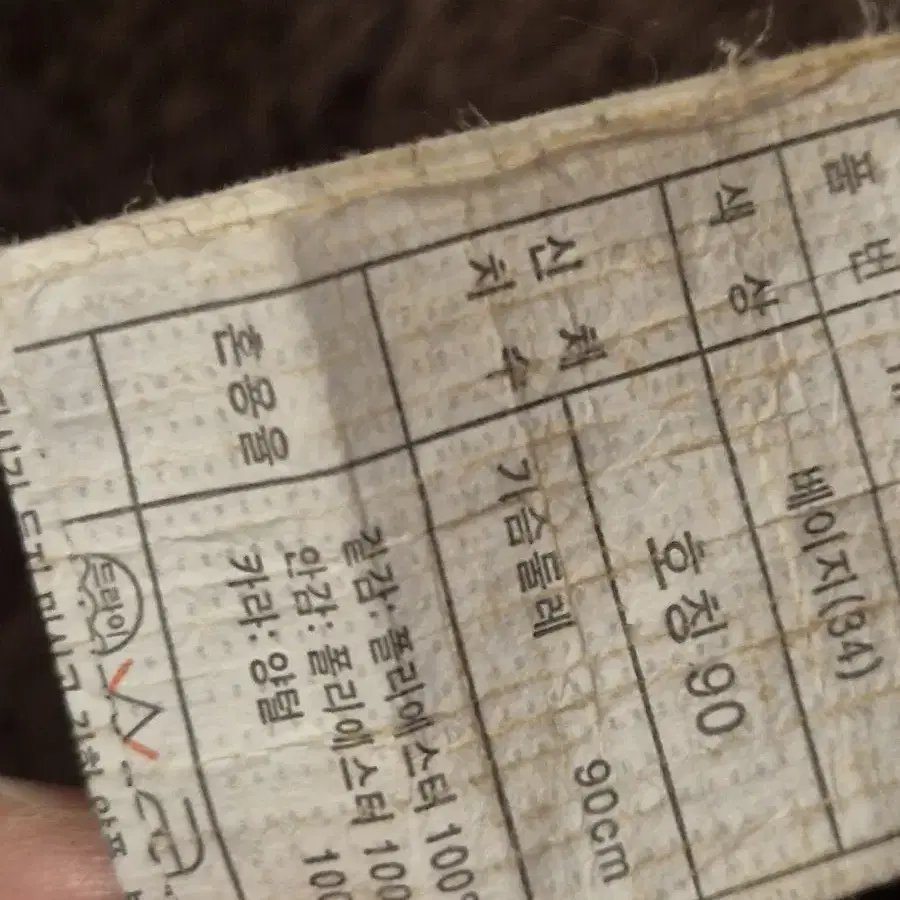 품 번
색 상 베이지(34)
신 체 호칭 90
치 수 가슴둘레 90cm
혼용율 겉감: 폴리에스터 100
안감: 폴리에스터 100
카라: 양털 100
드라이